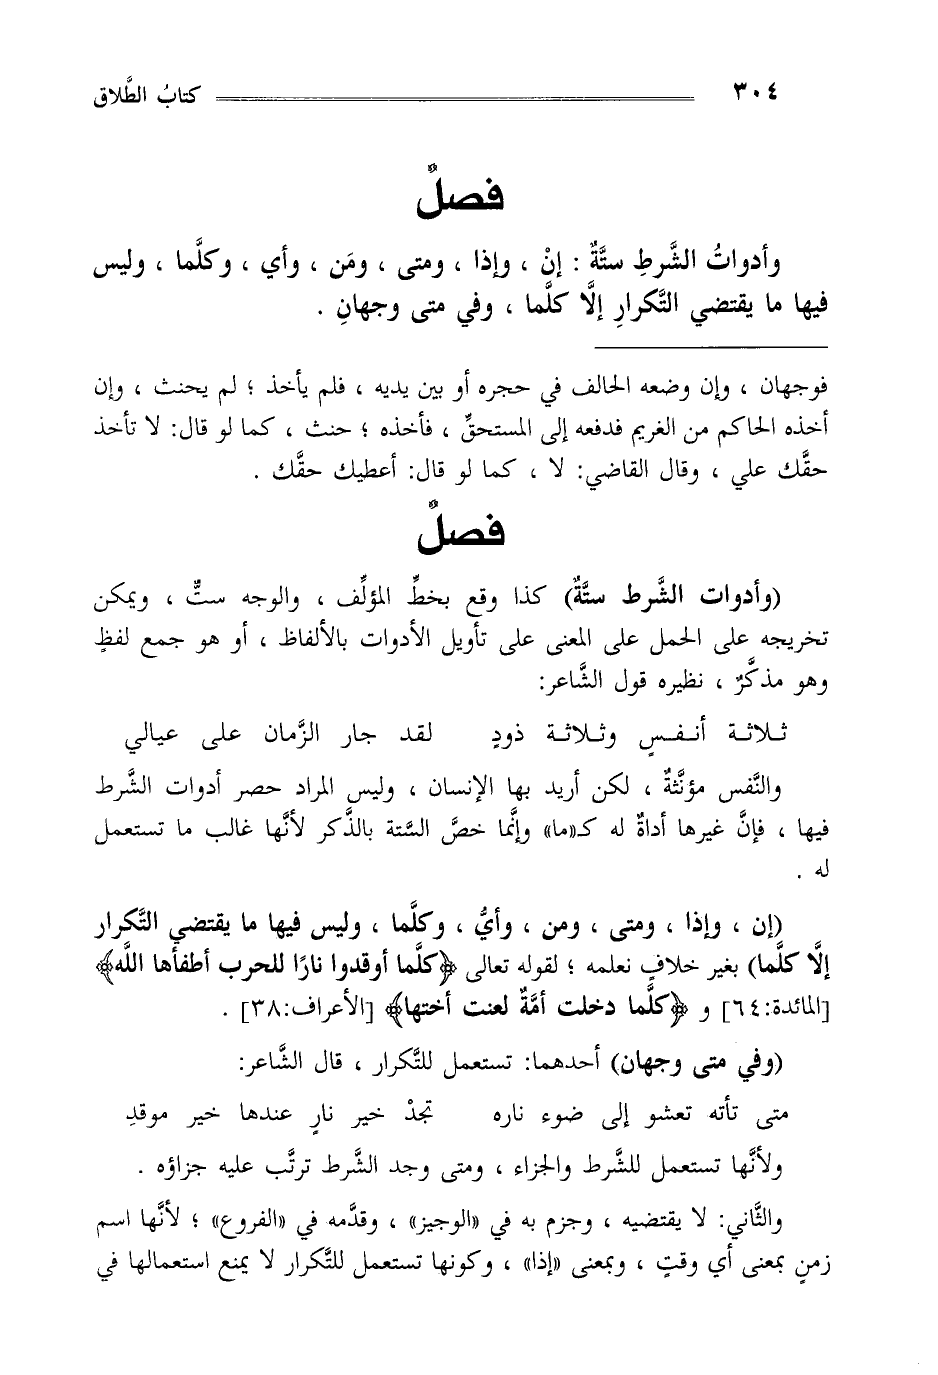 ٣٠٤ كتابُ الطَّلاق
فصلٌ
وأدواتُ الشَّرطِ ستَّةٌ : إنْ ، وإذا ، ومتى ، ومَن ، وأي ، وكلَّما ، وليس
فيها ما يقتضي التَّكرارِ إلَّا كلَّما ، وفي متى وجهانِ .
فوجهان ، وإن وضعه الحالف في حجره أو بين يديه ، فلم يأخذ ؛ لم يحنث ، وإن
أخذه الحاكم من الغريم فدفعه إلى المستحقِّ ، فأخذه ؛ حنث ، كما لو قال: لا تأخذ
حقَّك علي ، وقال القاضي: لا ، كما لو قال: أعطيك حقَّك .
فصلٌ
(وأدوات الشَّرط ستَّةٌ) كذا وقع بخطِّ المؤلِّف ، والوجه ستٌّ ، ويمكن
تخريجه على الحمل على المعنى على تأويل الأدوات بالألفاظ ، أو هو جمع لفظٍ
وهو مذكَّرٌ ، نظيره قول الشَّاعر:
ثـلاثـة أنـفـسٍ وثـلاثـة ذودٍ لقـد جار الزَّمان على عيالي
والنَّفس مؤنَّثةٌ ، لكن أريد بها الإنسان ، وليس المراد حصر أدوات الشَّرط
فيها ، فإنَّ غيرها أداةٌ له كـ«ما» وإنَّما خصَّ السَّتة بالذَّكر لأنَّها غالب ما تستعمل
له .
(إن ، وإذا ، ومتى ، ومن ، وأيُّ ، وكلَّما ، وليس فيها ما يقتضي التَّكرار
إلَّا كلَّما) بغير خلافٍ نعلمه ؛ لقوله تعالى ﴿كلَّما أوقدوا نارًا للحرب أطفأها اللَّه﴾
[المائدة:٦٤] و ﴿كلَّما دخلت أمَّةٌ لعنت أختها﴾ [الأعراف:٣٨] .
(وفي متى وجهان) أحدهما: تستعمل للتَّكرار ، قال الشَّاعر:
متى تأته تعشو إلى ضوء ناره تجدْ خير نارٍ عندها خير موقدِ
ولأنَّها تستعمل للشَّرط والجزاء ، ومتى وجد الشَّرط ترتَّب عليه جزاؤه .
والثَّاني: لا يقتضيه ، وجزم به في «الوجيز» ، وقدَّمه في «الفروع» ؛ لأنَّها اسم
زمنٍ بمعنى أي وقتٍ ، وبمعنى «إذا» ، وكونها تستعمل للتَّكرار لا يمنع استعمالها في